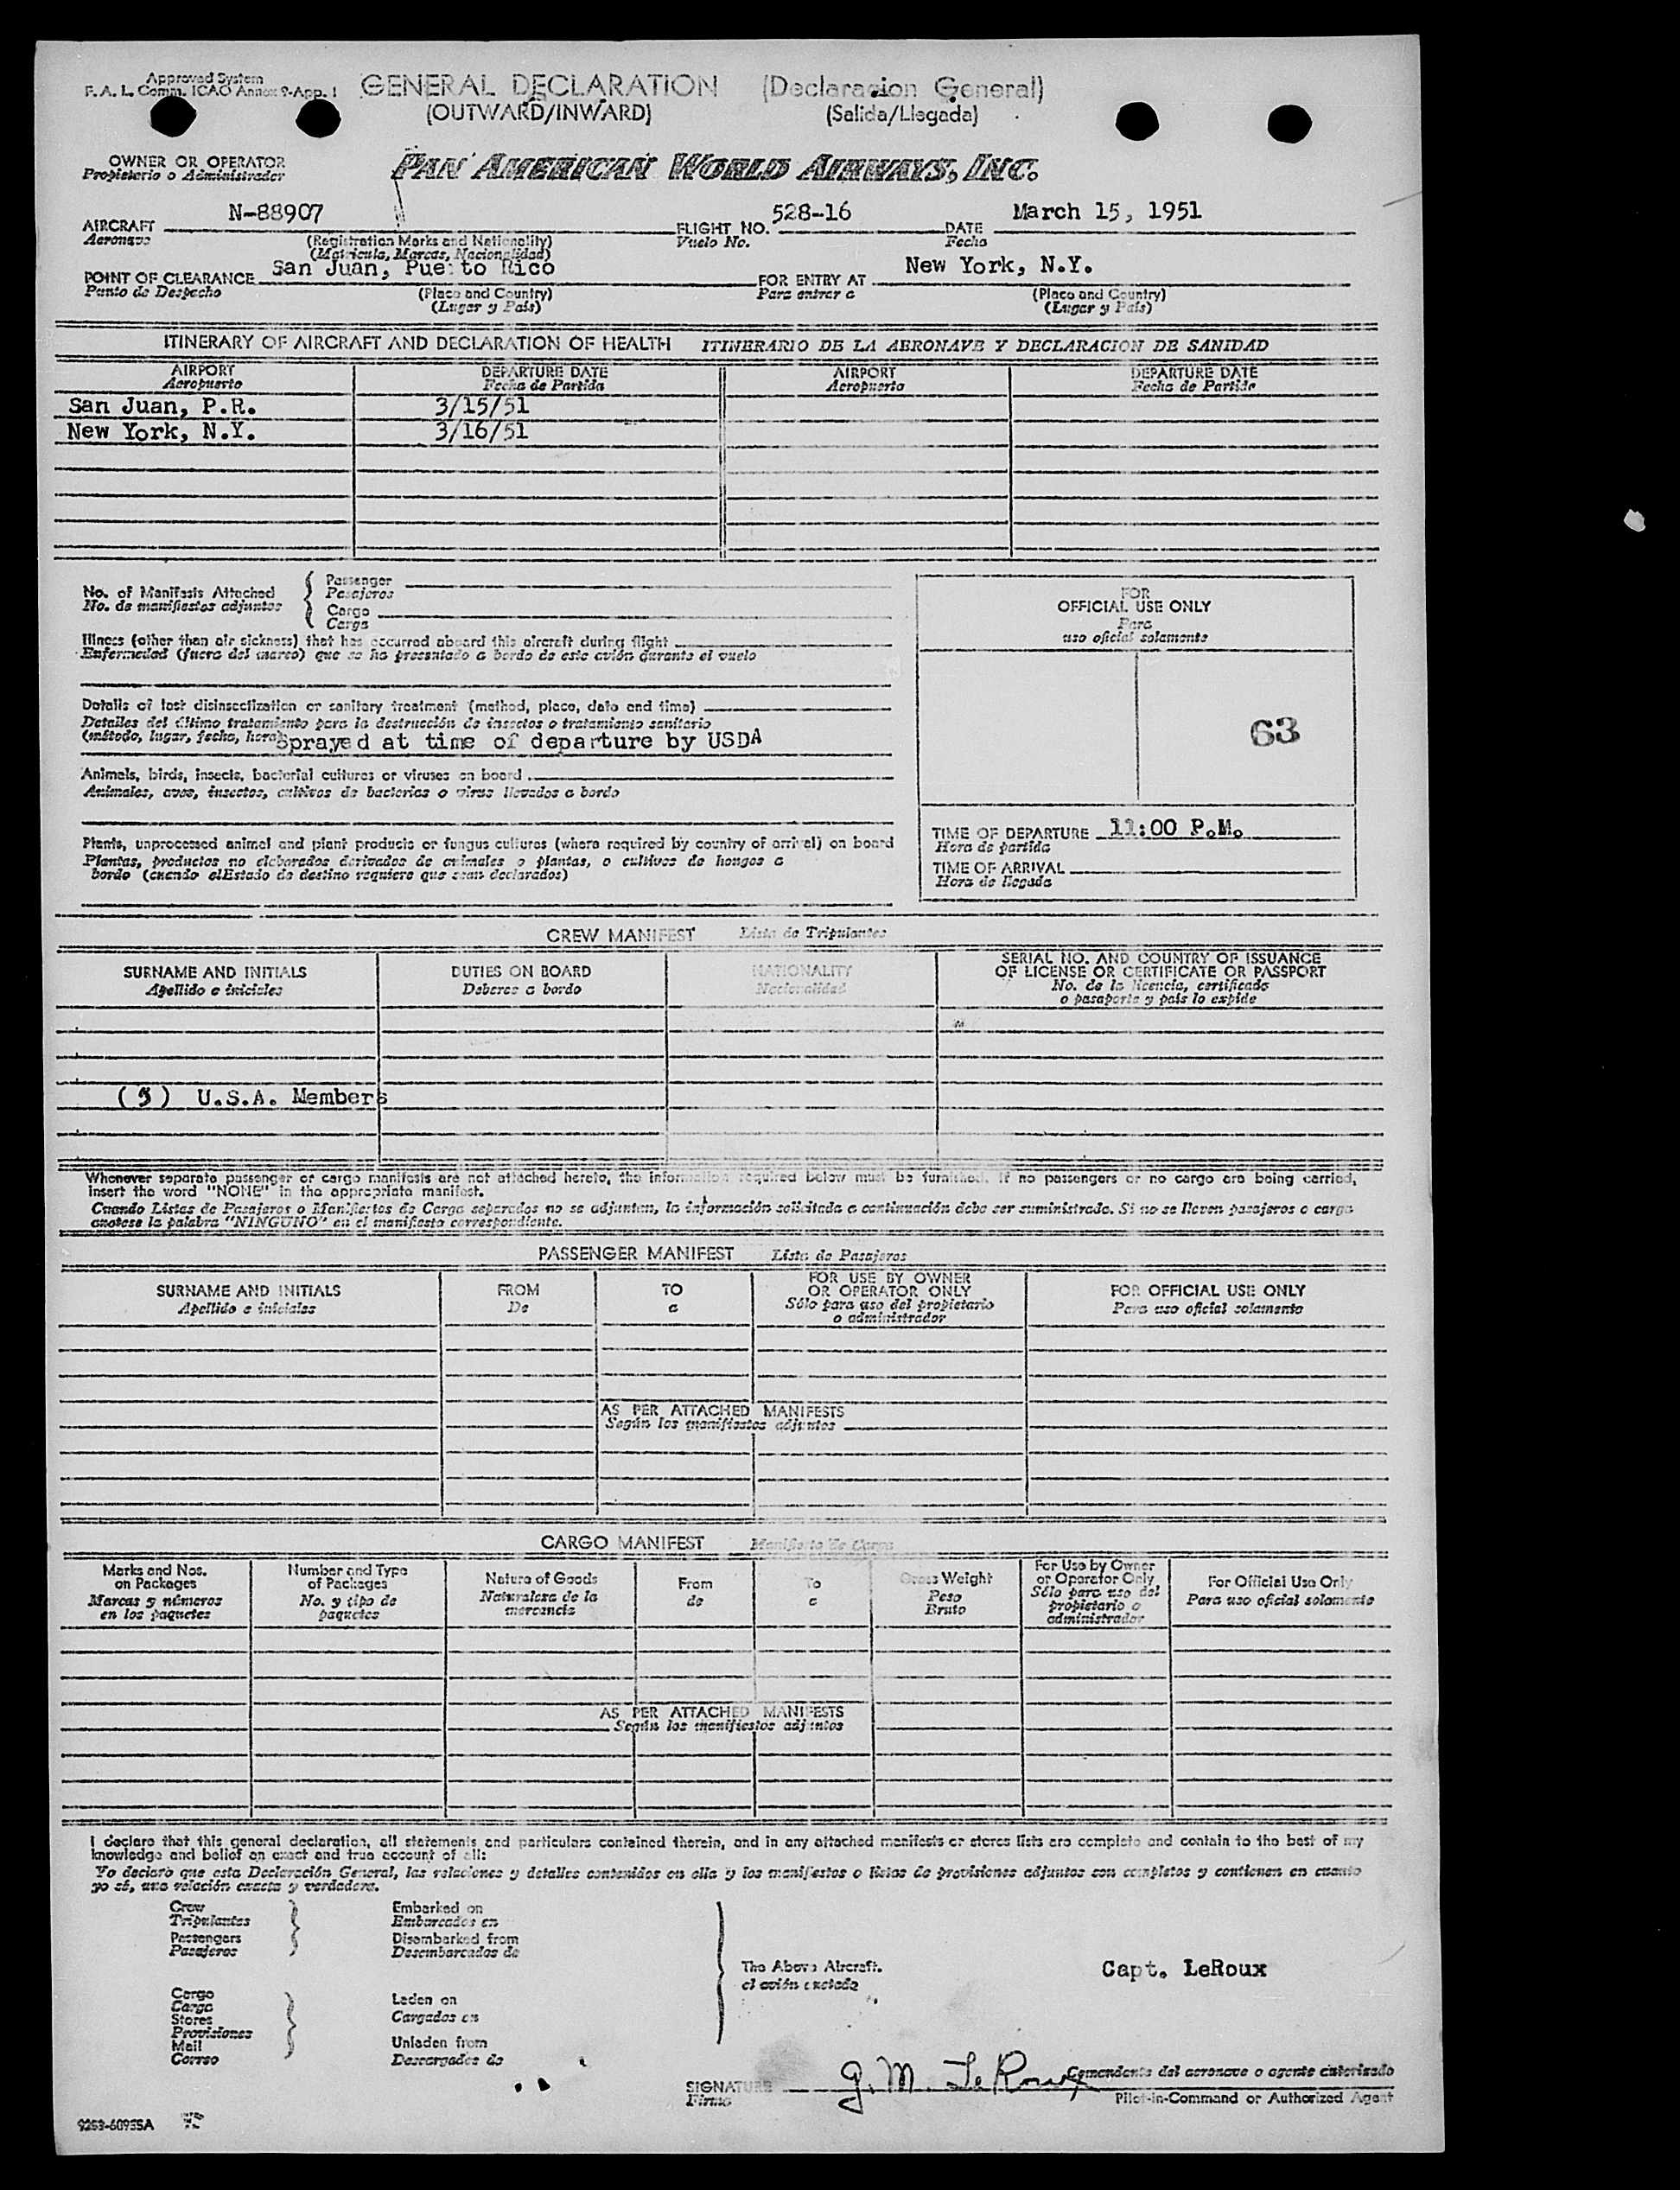 Approved System
F. A. L. Comm. ICAO Annex 9-App. 1
GENERAL DECLARATION (Declaracion General)
(OUTWARD/INWARD) (Salida/Llegada)
OWNER OR OPERATOR
Propietario o Administrador
PAN AMERICAN WORLD AIRWAYS, INC.
AIRCRAFT N-88907 FLIGHT NO. 528-16 DATE March 15, 1951
Aeronave Vuelo No. Fecha
(Registration Marks and Nationality)
(Matricula, Marcas, Nacionalidad)
POINT OF CLEARANCE San Juan, Puerto Rico FOR ENTRY AT New York, N.Y.
Punto de Despacho (Place and Country) Para entrar a (Place and Country)
(Lugar y País) (Lugar y País)
ITINERARY OF AIRCRAFT AND DECLARATION OF HEALTH ITINERARIO DE LA AERONAVE Y DECLARACION DE SANIDAD
AIRPORT DEPARTURE DATE AIRPORT DEPARTURE DATE
Aeropuerto Fecha de Partida Aeropuerto Fecha de Partida
San Juan, P.R. 3/15/51
New York, N.Y. 3/16/51
No. of Manifests Attached
No. de manifiestos adjuntos
Passenger
Pasajeros
Cargo
Carga
Illness (other than air sickness) that has occurred aboard this aircraft during flight
Enfermedad (fuera del mareo) que se ha presentado a bordo de este avión durante el vuelo
Details of last disinsectization or sanitary treatment (method, place, date and time)
Detalles del último tratamiento para la destrucción de insectos o tratamiento sanitario
(método, lugar, fecha, hora) Sprayed at time of departure by USDA
Animals, birds, insects, bacterial cultures or viruses on board
Animales, aves, insectos, cultivos de bacterias o virus llevados a bordo
Plants, unprocessed animal and plant products or fungus cultures (where required by country of arrival) on board
Plantas, productos no elaborados derivados de animales o plantas, o cultivos de hongos a
bordo (cuando elEstado de destino requiere que sean declarados)
FOR
OFFICIAL USE ONLY
Para
uso oficial solamente
63
TIME OF DEPARTURE 11:00 P.M.
Hora de partida
TIME OF ARRIVAL
Hora de llegada
CREW MANIFEST Lista de Tripulantes
SURNAME AND INITIALS DUTIES ON BOARD NATIONALITY SERIAL NO. AND COUNTRY OF ISSUANCE
OF LICENSE OR CERTIFICATE OR PASSPORT
Apellido e iniciales Deberes a bordo Nacionalidad No. de la licencia, certificado
o pasaporte y país lo expide
(5) U.S.A. Members
Whenever separate passenger or cargo manifests are not attached hereto, the information required below must be furnished. If no passengers or no cargo are being carried,
insert the word "NONE" in the appropriate manifest.
Cuando Listas de Pasajeros o Manifiestos de Carga separados no se adjunten, la información solicitada a continuación debe ser suministrada. Si no se lleven pasajeros o carga
anotese la palabra "NINGUNO" en el manifiesto correspondiente.
PASSENGER MANIFEST Lista de Pasajeros
SURNAME AND INITIALS FROM TO FOR USE BY OWNER
OR OPERATOR ONLY FOR OFFICIAL USE ONLY
Apellido e iniciales De a Sólo para uso del propietario
o administrador Para uso oficial solamente
AS PER ATTACHED MANIFESTS
Según los manifiestos adjuntos
CARGO MANIFEST Manifiesto de Carga
Marks and Nos.
on Packages
Marcas y números
en los paquetes
Number and Type
of Packages
No. y tipo de
paquetes
Nature of Goods
Naturaleza de la
mercancía
From
de
To
a
Gross Weight
Peso
Bruto
For Use by Owner
or Operator Only
Sólo para uso del
propietario o
administrador
For Official Use Only
Para uso oficial solamente
AS PER ATTACHED MANIFESTS
Según los manifiestos adjuntos
I declare that this general declaration, all statements and particulars contained therein, and in any attached manifests or stores lists are complete and contain to the best of my
knowledge and belief an exact and true account of all:
Yo declaro que esta Declaración General, las relaciones y detalles contenidos en ella y los manifiestos o listas de provisiones adjuntos son completos y contienen en cuanto
yo sé, una relación exacta y verdadera.
Crew
Tripulantes
Passengers
Pasajeros
Embarked on
Embarcados en
Disembarked from
Desembarcados de
Cargo
Carga
Stores
Provisiones
Mail
Correo
Laden on
Cargados en
Unladen from
Descargados de
The Above Aircraft.
el avión
Capt. LeRoux
SIGNATURE G. M. LeRoux
Firma
Comandante del aeronave o agente autorizado
Pilot-in-Command or Authorized Agent
9253-60955A